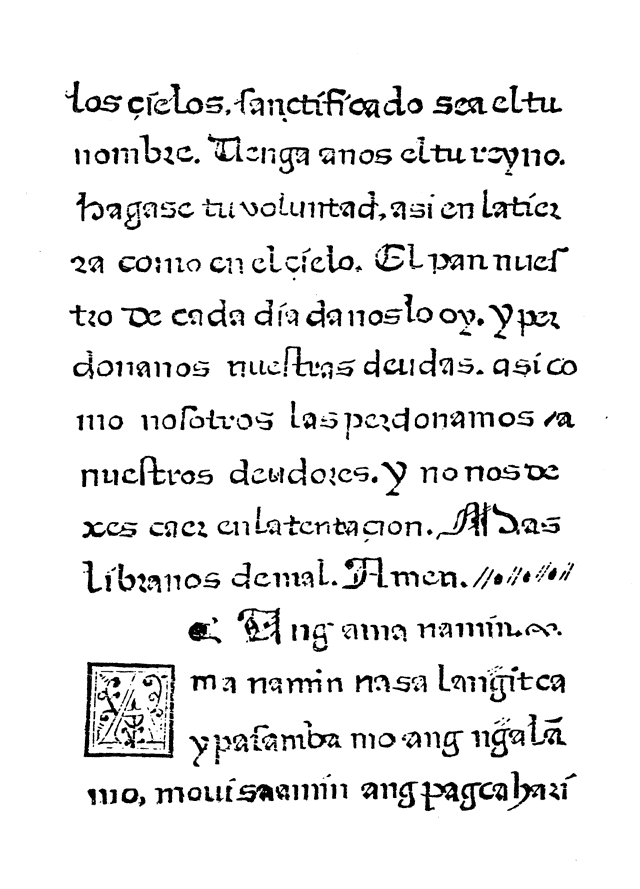 los çielos, sanctificado sea el tu
nombre. Uenga anos el tu reyno.
Hagase tu voluntad, asi en la tier
ra como en el çielo. El pan nues
tro de cada dia da nos lo oy. Y per
donanos nuestras deudas. asi co
mo nosotros las perdonamos a
nuestros deudores. Y no nos de
xes caer en la tentaçion. Mas
libranos de mal. Amen.
Ang ama namin.
Ama namin nasa langit ca
ypasamba mo ang ngalã
mo, moui saamin ang pagcahari